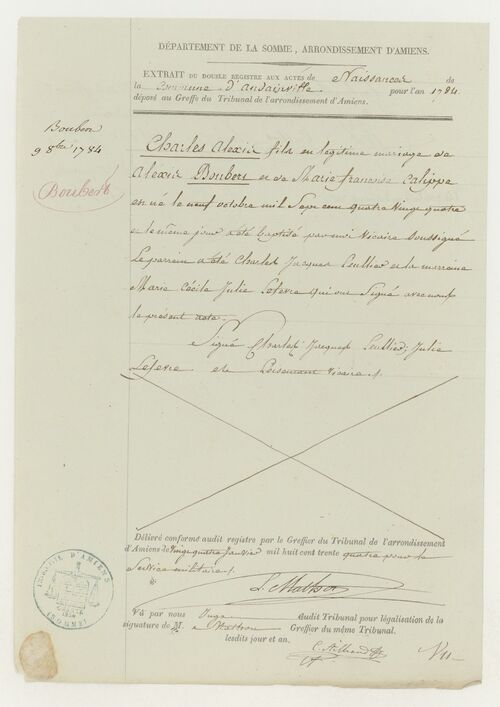 DÉPARTEMENT DE LA SOMME, ARRONDISSEMENT D'AMIENS.
EXTRAIT DU DOUBLE REGISTRE AUX ACTES de Naissances de
la Commune d'andainville pour l'an 1784
déposé au Greffe du Tribunal de l'arrondissement d'Amiens.
Boubers
9 8bre 1784
Boubers
Charles Alexis fils en légitime mariage de
Alexis Boubers et de Marie françoise Calippe
en né le neuf octobre mil Sept cent quatre vingt quatre
et le même jour a été baptisé par moi vicaire Soussigné
Le parrein a été Charles Jacques Leullier et la marraine
Marie Cécile Julie Lefevre qui ont Signé avec nous
le présent acte.
Signé Charles Jacques Leullier; Julie
Lefevre et vicaire
Délivré conforme audit registre par le Greffier du Tribunal de l'arrondissement
d'Amiens le vingt quatre janvier mil huit cent trente quatre pour le
Service militaire
TRIBUNAL D'AMIENS
(SOMME)
Vu par nous Juge audit Tribunal pour légalisation de la
signature de M. Greffier du même Tribunal.
lesdits jour et an.